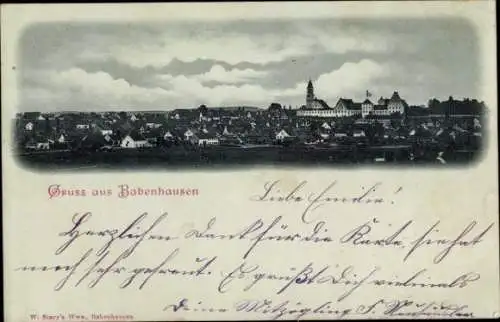 Gruss aus Babenhausen
Liebe Emilie!
Herzlichen Dank für die Karte, sie hat
mich sehr gefreut. Es grüßt Dich vielmals
Deine Mitzögling F.
W. Story's Wwe., Babenhausen